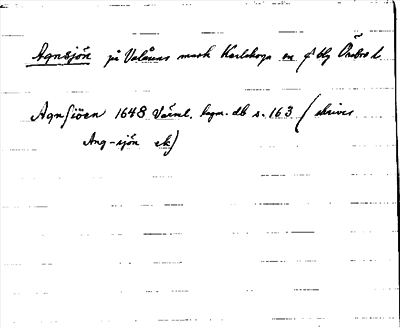 Agnsjön på Valåsens mark Karlskoga sn Örebro l.
Agnsiöen 1648 Värml. lagm. db s. 163 (skrives
Ang-sjön ek)